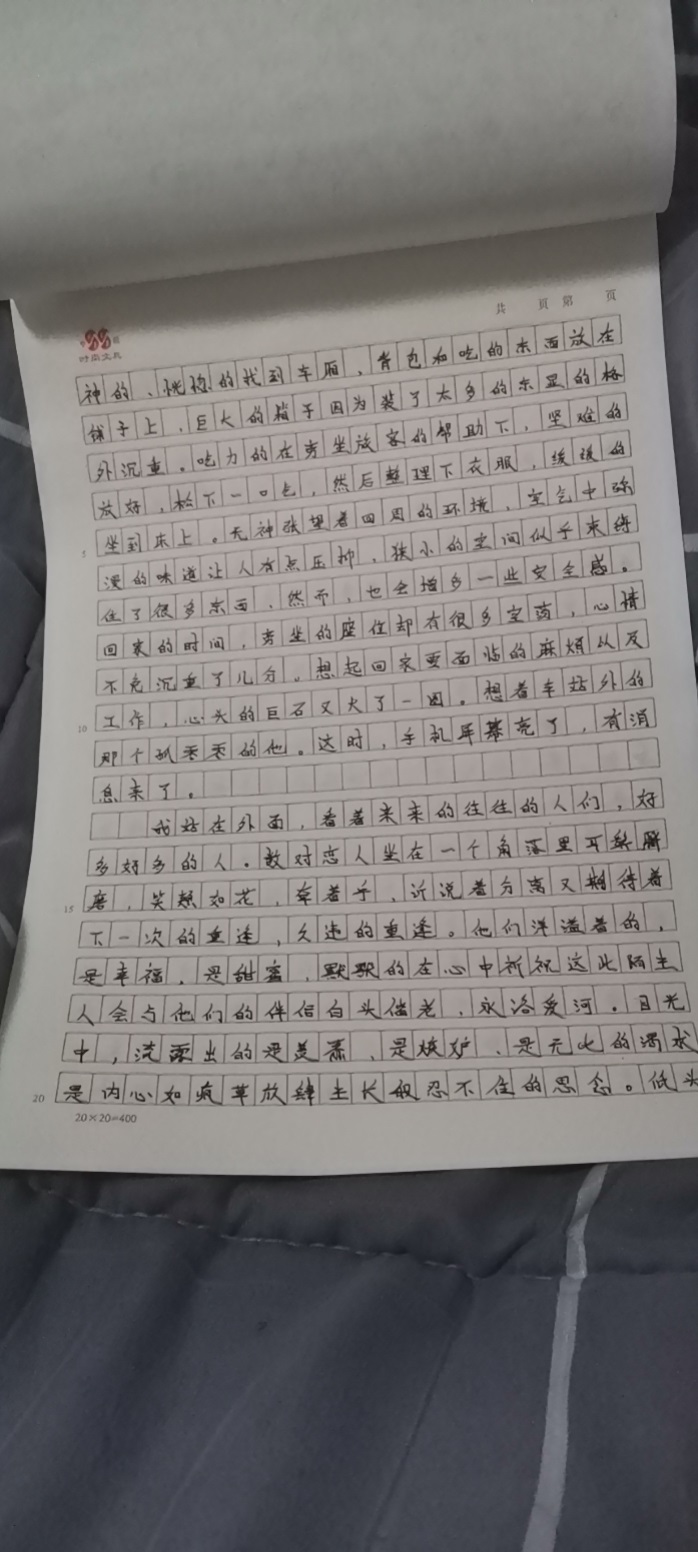 共 页 第 页
时尚文具
神的、恍惚的找到车厢,背包和吃的东西放在
铺子上,巨大的箱子因为装了太多的东显的格
外沉重。吃力的在旁坐旅客的帮助下,坚难的
放好,松下一口气,然后整理下衣服,缓缓的
坐到床上。无神张望着四周的环境,空气中弥
5
漫的味道让人有点压抑,狭小的空间似乎束缚
住了很多东西,然而,也会增多一些安全感。
回家的时间,旁坐的座位却有很多空，心情
不免沉重了几分。想起回家要面临的麻烦从及
工作,心头的巨石又大了一圈。想着车站外的
10
那个孤零零的他。这时,手机屏幕亮了,有消
息来了。
我站在外面,看着来来的往往的人们,好
多好多的人。数对恋人坐在一个角落里耳鬓厮
磨,笑颜如花,牵着手,诉说着分离又期待着
15
下一次的重逢,久违的重逢。他们洋溢着的,
是幸福,是甜蜜,默默的在心中祈祝这些陌生
人会与他们的伴侣白头偕老,永浴爱河。目光
中,流露出的是羡慕、是嫉妒、是无比的渴求
是内心如疯草放肆生长般忍不住的思念。低头
20
20×20=400